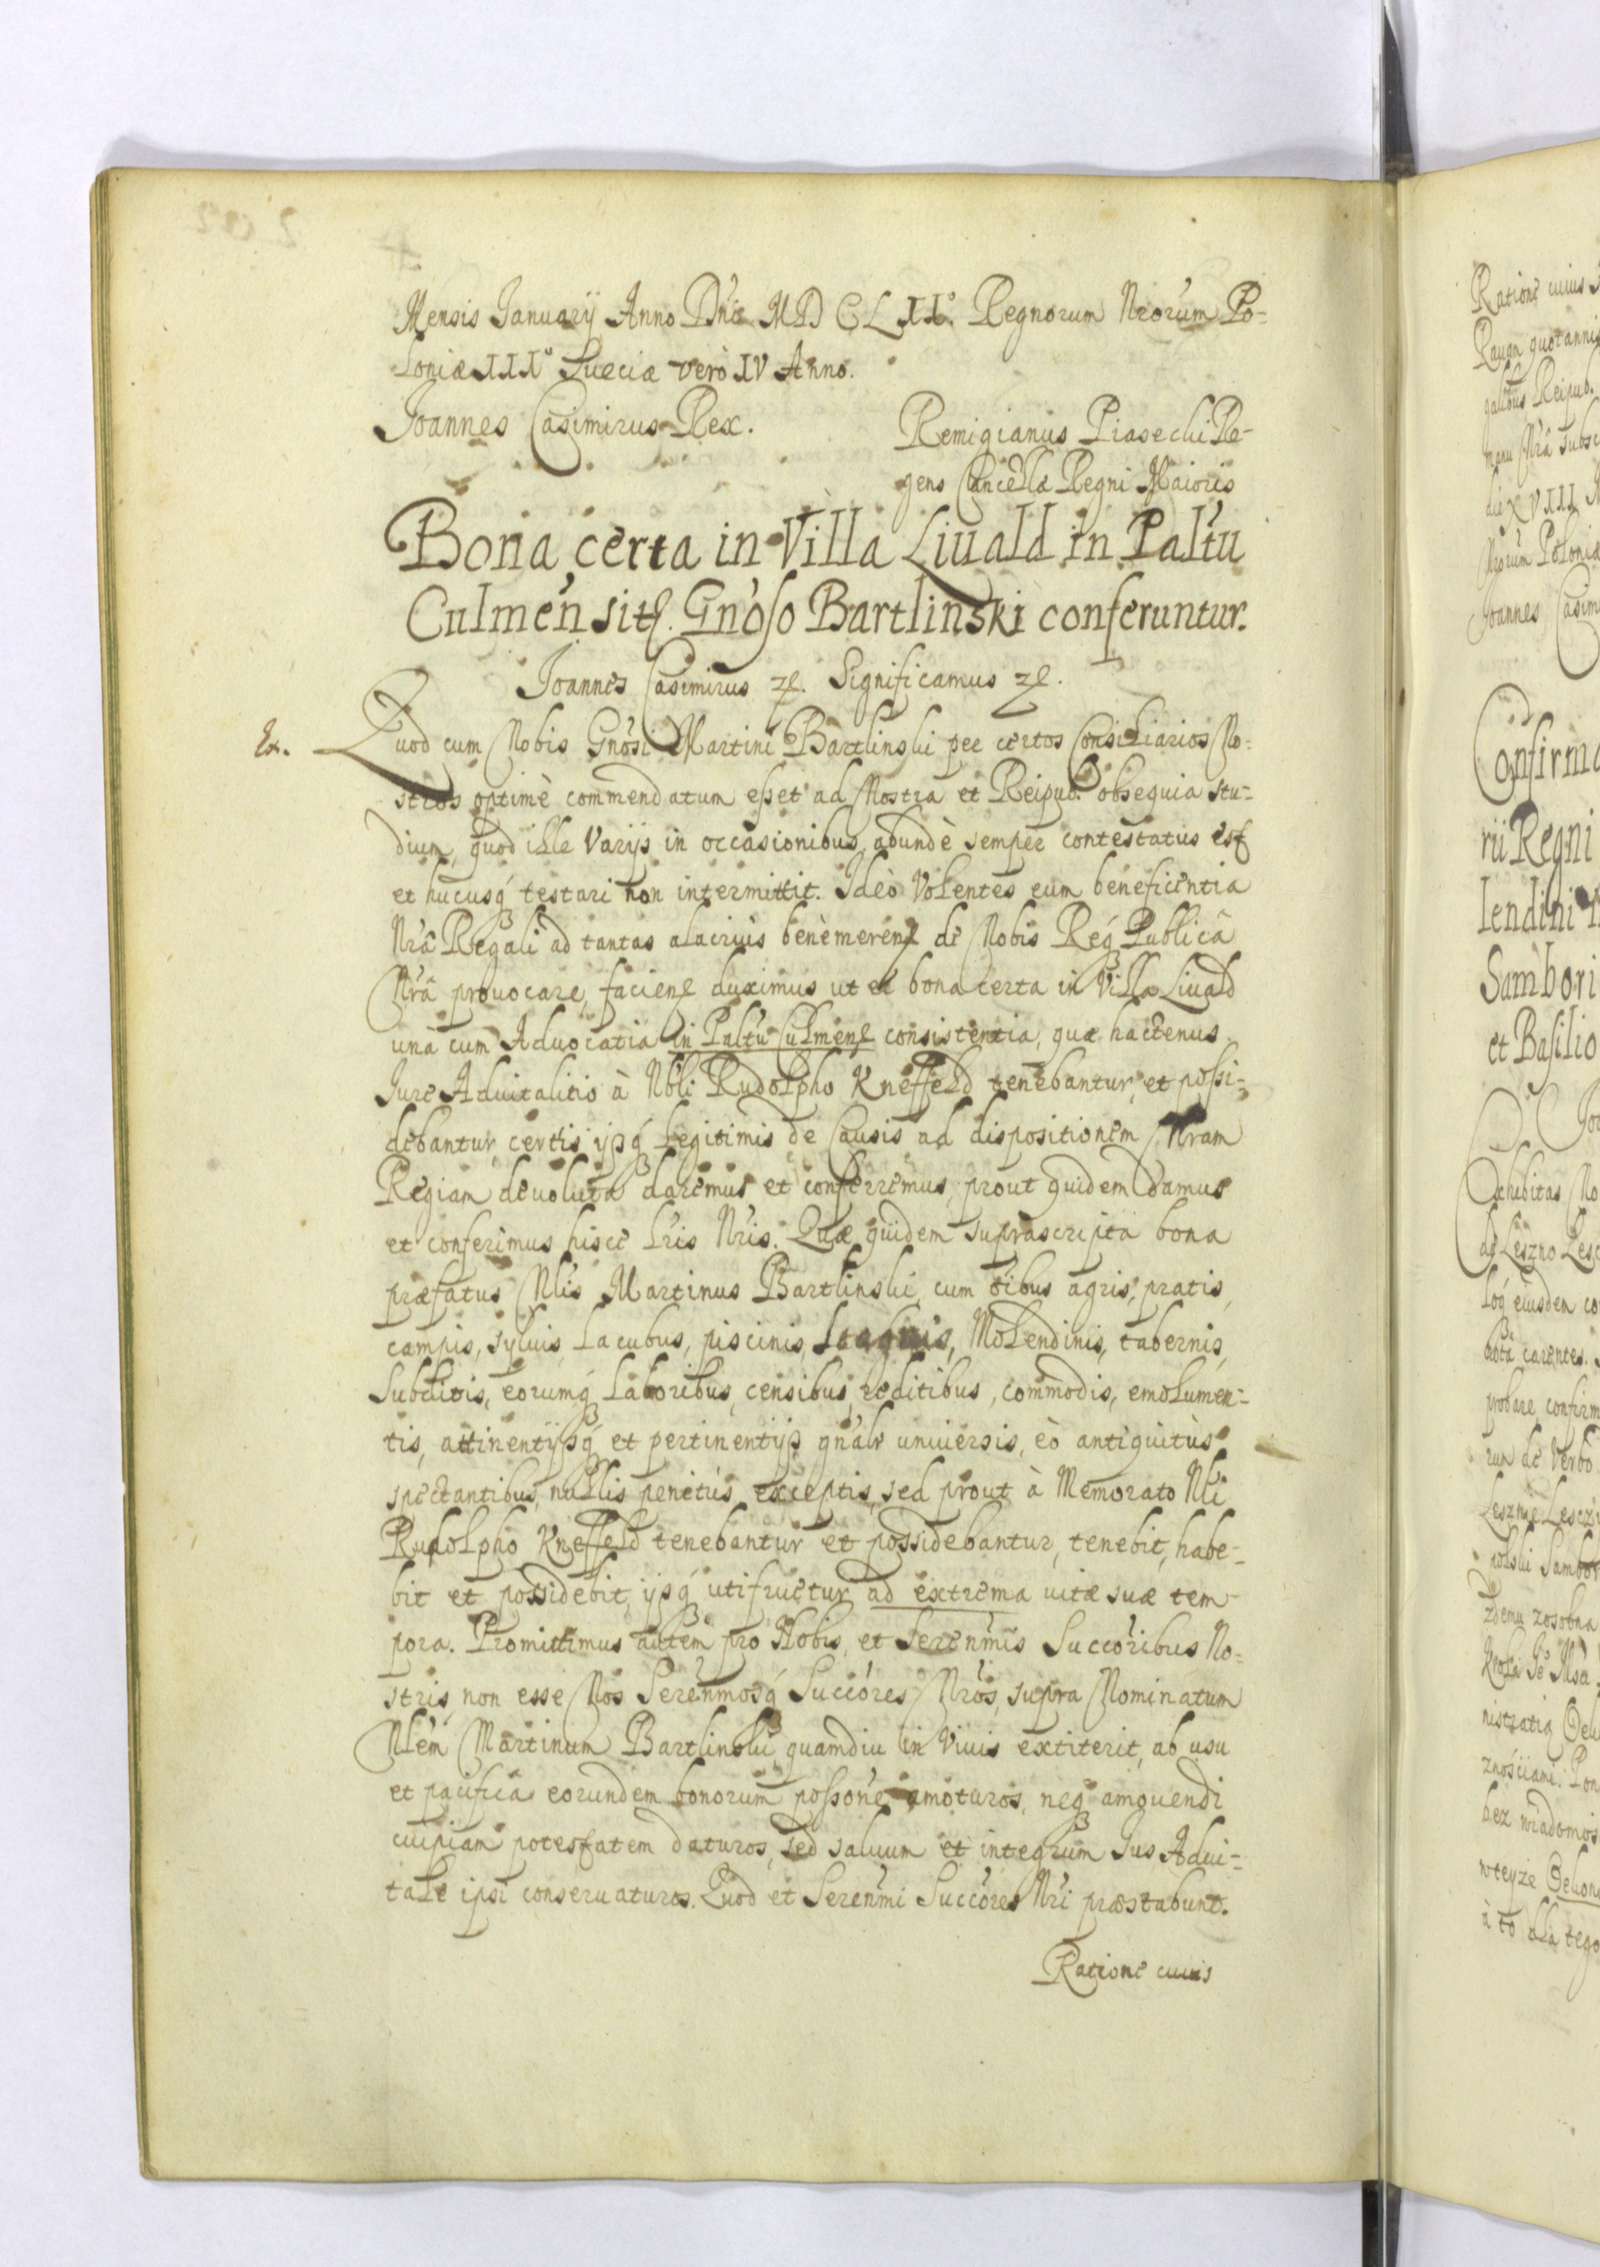 Mensis Januarij Anno Dńi MDCLII° Regnorum Nrorum Po-
loniæ III° Sueciæ vero IV Anno.
Joannes Casimirus Rex.
Remigianus Piasecki Re-
gens Cancellæ Regni Maioris
Bona certa in Villa Liuald in Paltu
Culmen sit. Gnoso Bartlinski conferuntur.
Joannes Casimirus etc. Significamus etc.
Ex.
Quod cum Nobis Gnosi Martini Bartlinski per certos Consiliarios No-
stros optimè commendatum esset ad Nostra et Reipub. obsequia stu-
dium, quod ille Varijs in occasionibus abundè semper contestatus est
et hucusq́ testari non intermittit. Ideò Volentes eum beneficentia
Nrâ Regali ad tantas alacriùs benemeren de Nobis Req́ Publicâ
Nrâ prouocare, facien duximus ut ei bona certa in Villa Liuald
una cum Aduocatia in Paltu Culmen consistentia, quæ hactenus
Jure Aduitalitio à Nbli Rudolpho Kneffeld tenebantur et possi-
debantur, certis ijsq́ legitimis de Causis ad dispositionem Nram
Regiam deuoluta daremus et conferremus, prout quidem damus
et conferimus hisce Lris Nris. Quæ quidem suprascripta bona
præfatus Nlis Martinus Bartlinski, cum oibus agris, pratis,
campis, syluis, lacubus, piscinis, stagnis, Molendinis, tabernis,
Subditis, eorumq́ laboribus, censibus, reditibus, commodis, emolumen-
tis, attinentijsq́ et pertinentijs gnalr uniuersis, eò antiquitùs
spectantibus, nullis penitùs exceptis, sed prout à Memorato Nli
Rudolpho Kneffeld tenebantur et possidebantur, tenebit, habe-
bit et possidebit, ijsq́ utifruetur ad extrema uitæ suæ tem-
pora. Promittimus autem pro Nobis, et Serenmis Succoribus No-
stris, non esse Nos Serenmosq́ Succores Nros, supra Nominatum
Nlem Martinum Bartlinski, quamdiu in Viuis extiterit, ab usu
et pacifica eorundem bonorum possone amoturos, neq́ amouendi
cuipiam potestatem daturos, sed saluum et integrum Jus Adui-
tale ipsi conseruaturos. Quod et Serenmi Succores Nri præstabunt.
Ratione cuius